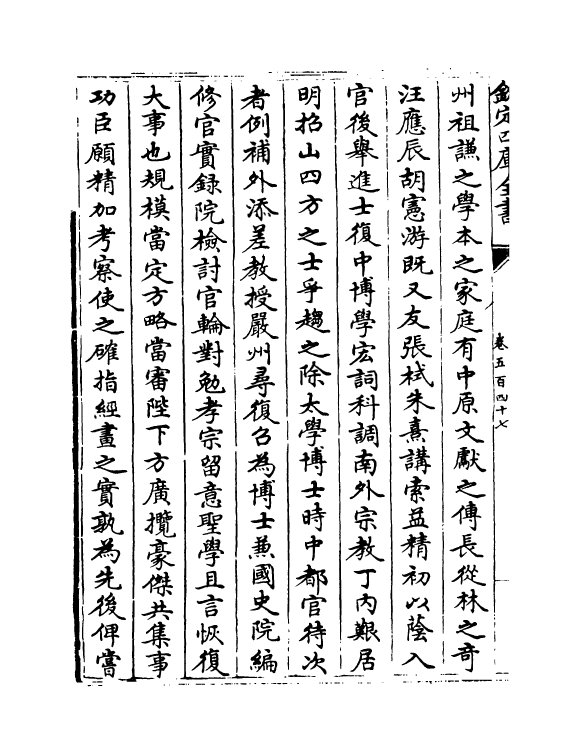 欽定四庫全書
卷五百四十七
州祖謙之學本之家庭有中原文獻之傳長從林之奇
汪應辰胡憲游既又友張栻朱熹講索益精初以蔭入
官後舉進士復中博學宏詞科調南外宗教丁内艱居
明招山四方之士爭趨之除太學博士時中都官待次
者例補外添差教授嚴州尋復召為博士兼國史院編
修官實録院檢討官輪對勉孝宗留意聖學且言恢復
大事也規模當定方略當審陛下方廣攬豪傑共集事
功臣願精加考察使之確指經畫之實孰為先後俾嘗